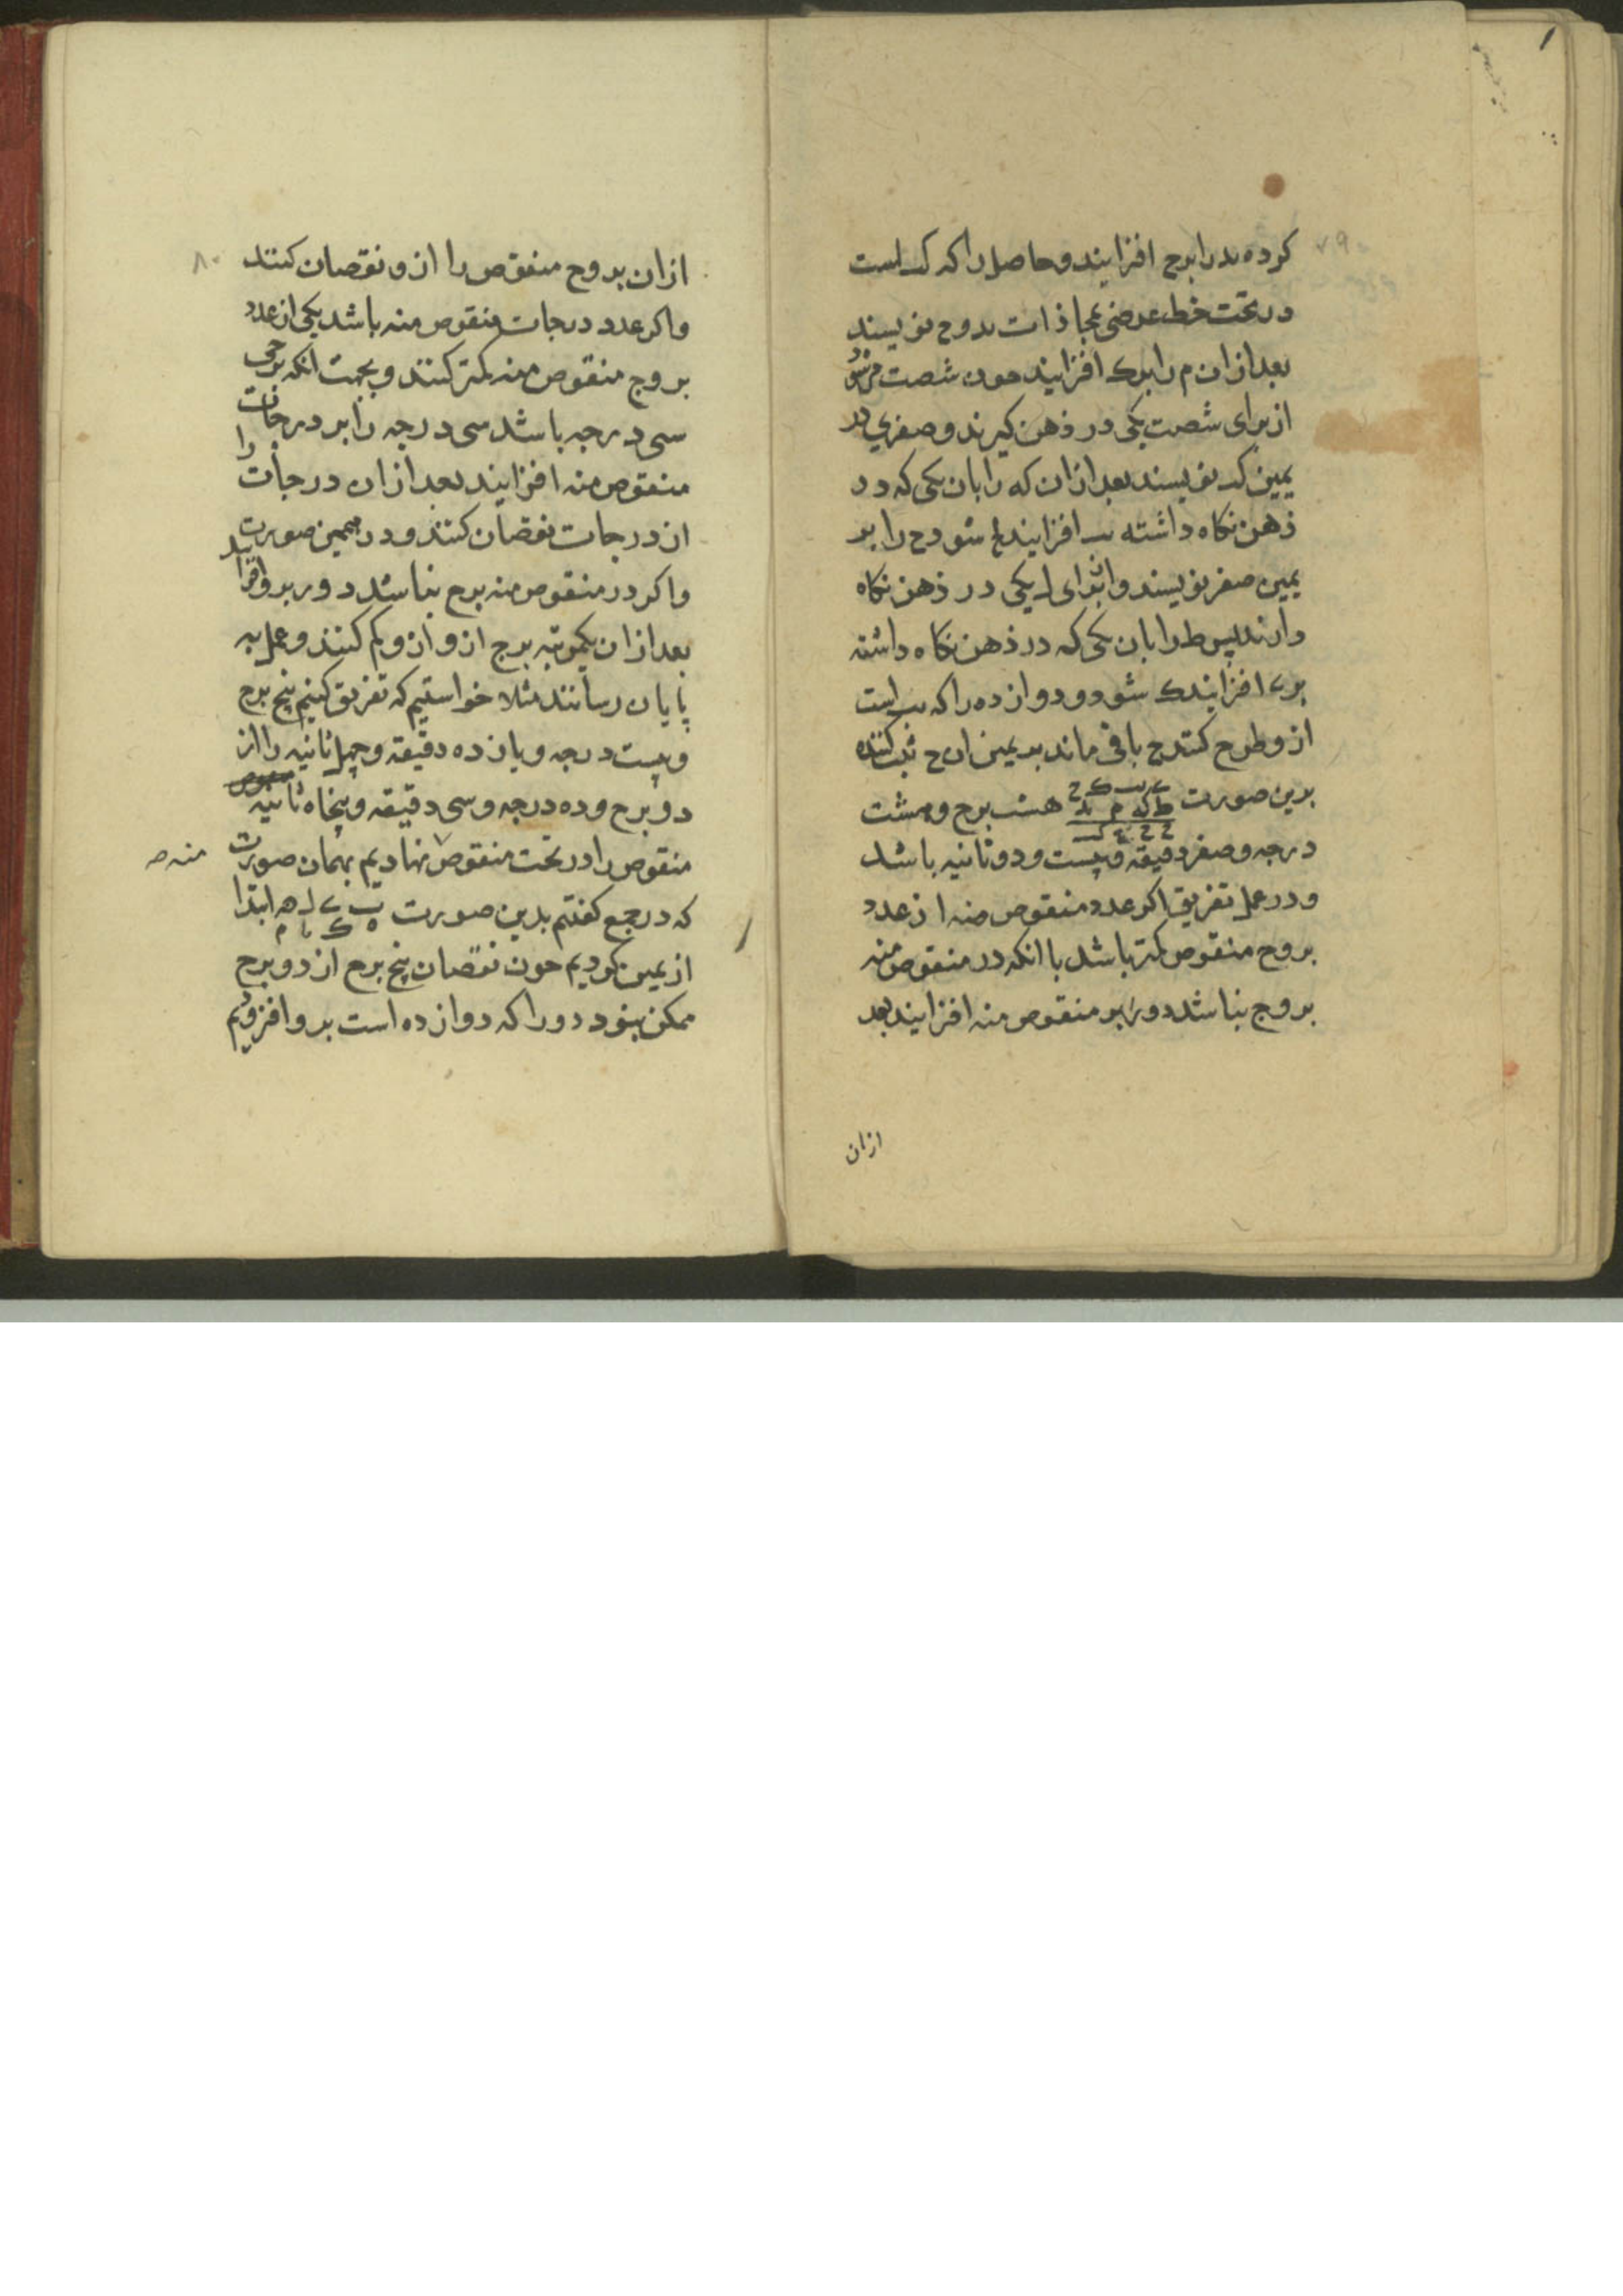 ۷۹
کرده ید را برح افزایند و حاصل را که کب است
در تحت خط عرضی بمحاذات ید و ح نویسند
بعد از ان م را بر ک افزایند چون شصت
از برای شصت یکی در ذهن کیرند و صفری در
یمین کب نویسند بعد از ان که را بان یکی که در
ذهن نکاه داشته افزایند شود ح را بر
یمین صفر نویسند و از برای ل یکی در ذهن نکاه
دارند پس ط را بان یکی که در ذهن نکاه داشته
بر ی افزایند ک شود و دوازده را که یب است
از و طرح کنند ح باقی ماند بر یمین ان ح ثبت کنند
بدین صورت هشت برح و هشت
درجه و صفر دقیقه و بیست و دو ثانیه باشد
و در عمل تفریق اکر عدد منقوص منه از عدد
بروح منقوص کمتر باشد یا انکه در منقوص منه
بروج نباشد دور بر منقوص منه افزایند بعد
ازان
۸۰
ازان بروح منقوص را از و نقصان کنند
و اکر عدد درجات منقوص منه باشد یکی از عدد
بروج منقوص منه کمتر کنند و بجهت انکه برجی
سی درجه باشد سی درجه را بر درجات
منقوص منه افزایند بعد از ان درجات را
از درجات نقصان کنند و در همین صورت
و اکر در منقوص منه برح نباشد دور برو افزایند
بعد از ان یکمرتبه برج از و کم کنند و عمل به
پایان رسانند مثلا خواستیم که تفریق کنیم پنج برح
و بیست درجه و یازده دقیقه و چهل ثانیه را از
دو برح و ده درجه و سی دقیقه و پنجاه ثانیه
منقوص را در تحت منقوص نهادیم بهمان صورت
منه صه
که در جمع کفتم بدین صورت ابتدا
از یمین کردیم چون نقصان پنج برح از دو برح
ممکن نبود دور را که دوازده است برو افزودیم